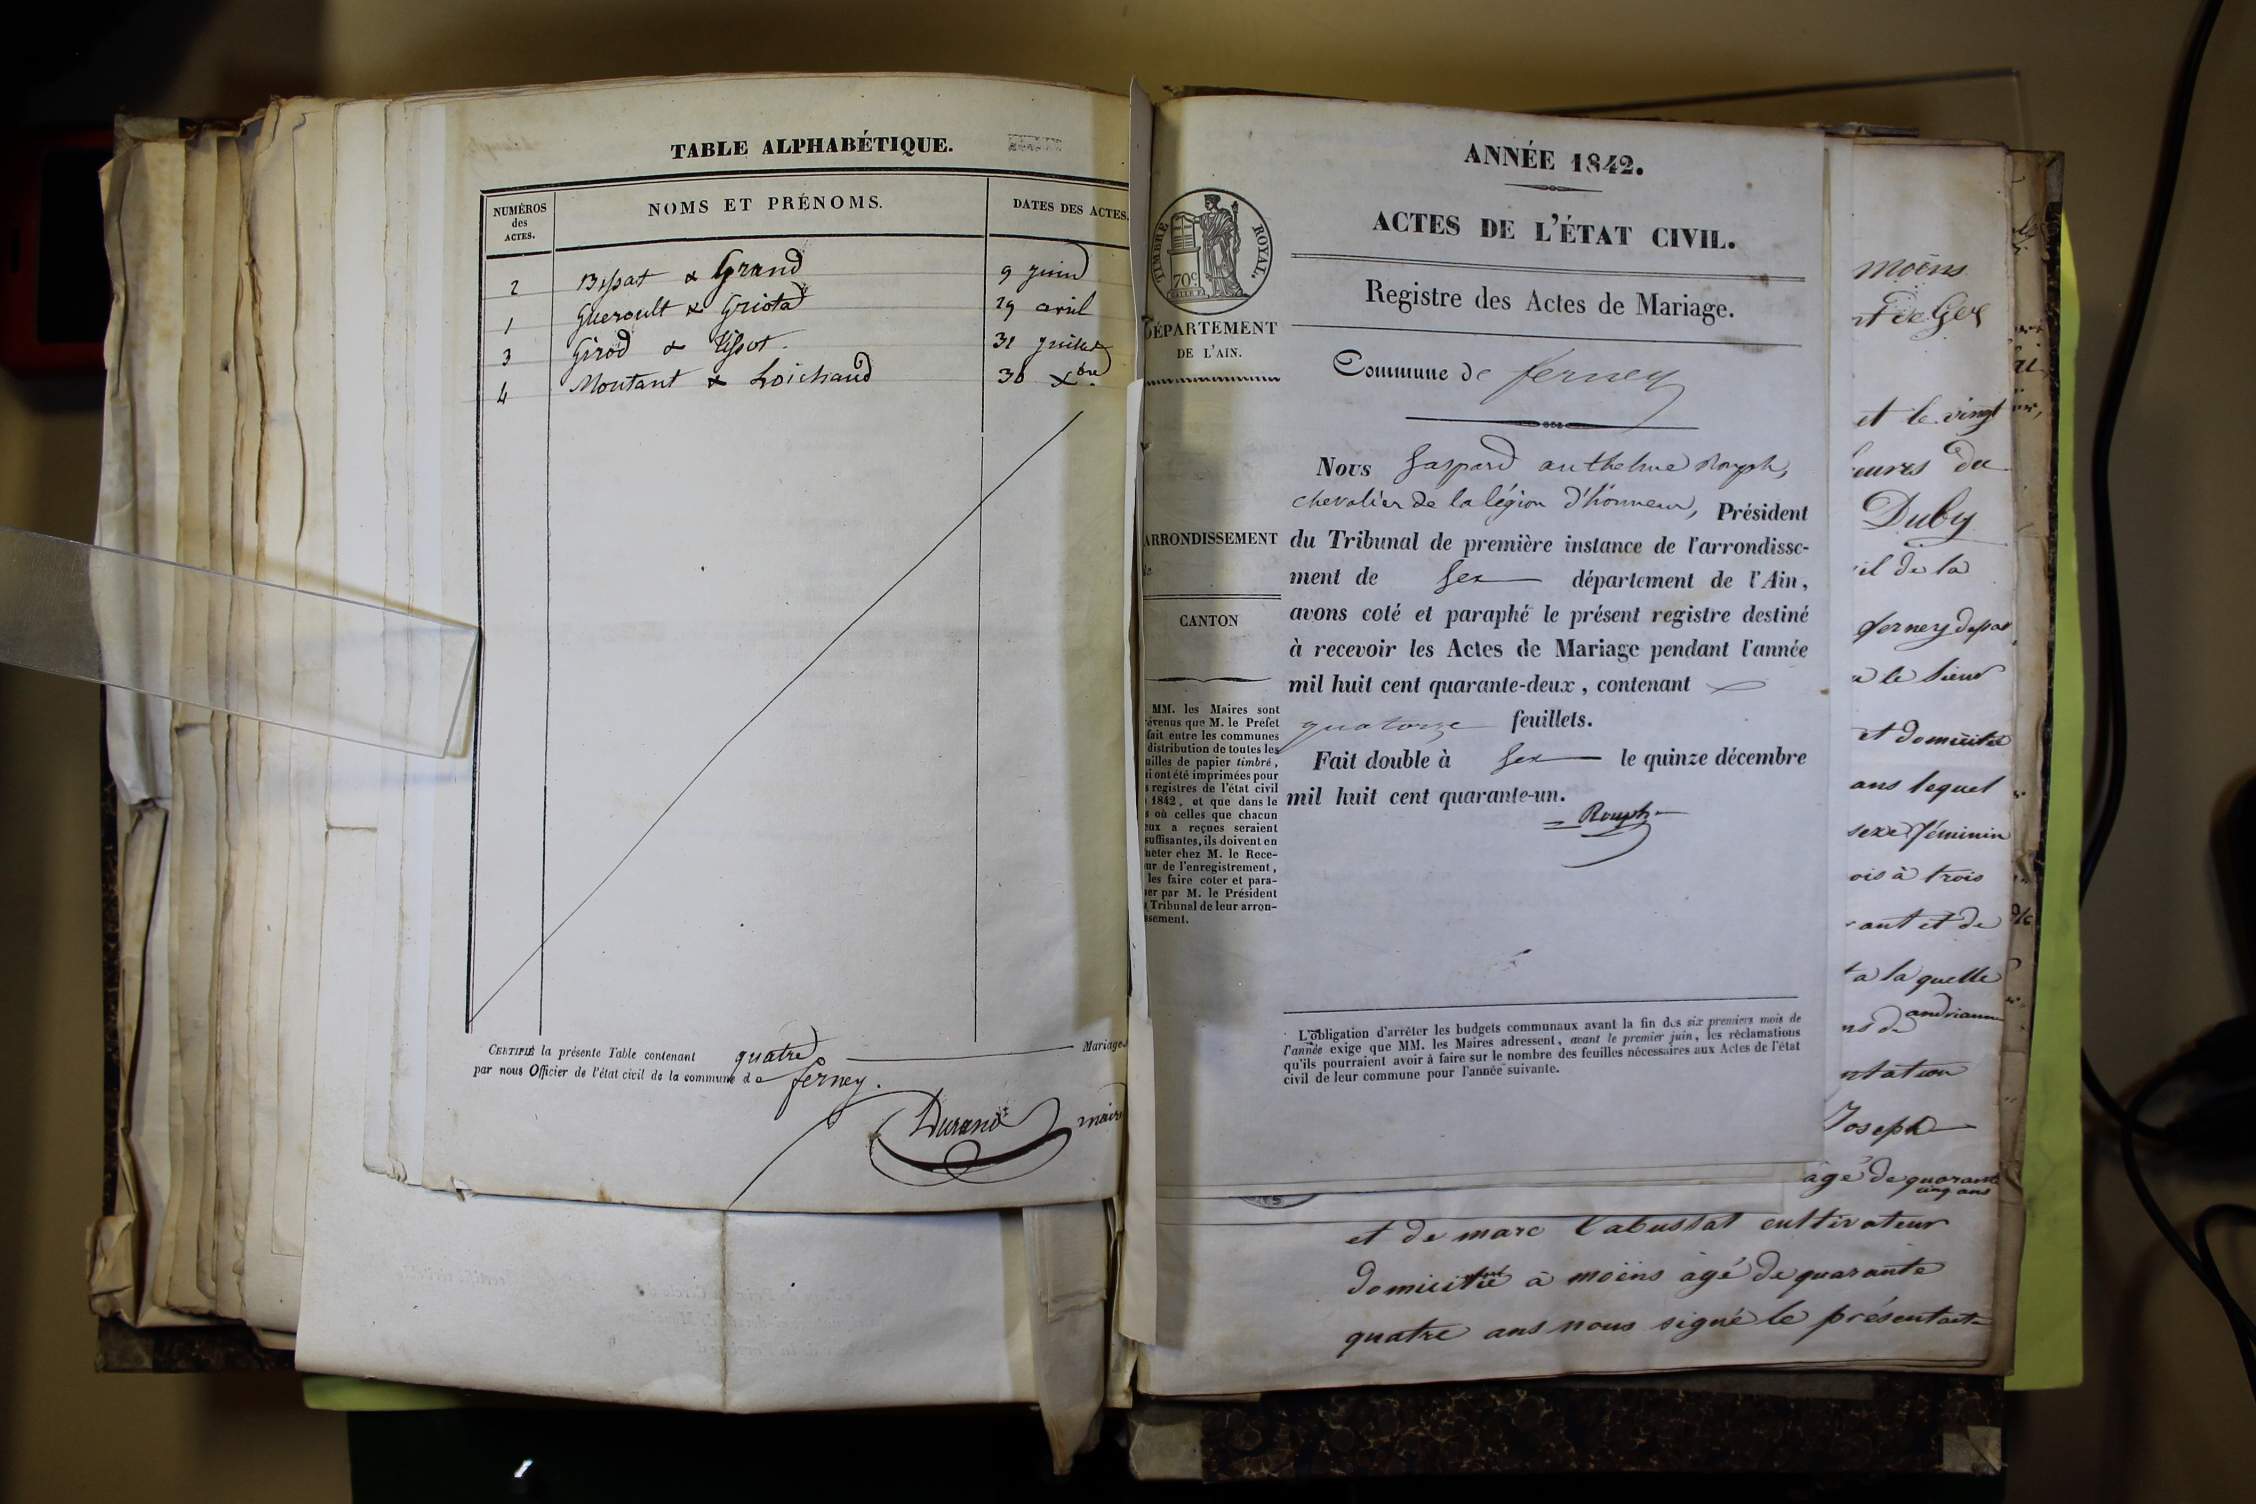 TABLE ALPHABÉTIQUE.
NUMÉROS
des
ACTES.
NOMS ET PRÉNOMS.
DATES DES ACTES.
2 Bissat & Grand 9 juin
1 Gueroult & Griota 29 avril
3 Girod & Tissot. 31 juillet
4 Moutant & Loichaud 30 Xbre
CERTIFIÉ la présente Table contenant quatre Mariages
par nous Officier de l'état civil de la commune de ferney.
Durand maire
ANNÉE 1842.
ACTES DE L'ÉTAT CIVIL.
Registre des Actes de Mariage.
TIMBRE ROYAL.
70c
DÉPARTEMENT
DE L'AIN.
ARRONDISSEMENT
CANTON
MM. les Maires sont
évenus que M. le Préfet
fait entre les communes
distribution de toutes les
uilles de papier timbré,
i ont été imprimées pour
s registres de l'état civil
1842, et que dans le
s où celles que chacun
eux a reçues seraient
suffisantes, ils doivent en
heter chez M. le Rece-
ur de l'enregistrement,
les faire coter et para-
er par M. le Président
Tribunal de leur arron-
ssement.
Commune de ferney
Nous Gaspard anthelme Rouph,
chevalier de la légion d'honneur, Président
du Tribunal de première instance de l'arrondisse-
ment de Gex département de l'Ain,
avons coté et paraphé le présent registre destiné
à recevoir les Actes de Mariage pendant l'année
mil huit cent quarante-deux, contenant
quatorze feuillets.
Fait double à Gex le quinze décembre
mil huit cent quarante-un.
Rouph
L'obligation d'arrêter les budgets communaux avant la fin des six premiers mois de
l'année exige que MM. les Maires adressent, avant le premier juin, les réclamations
qu'ils pourraient avoir à faire sur le nombre des feuilles nécessaires aux Actes de l'état
civil de leur commune pour l'année suivante.
moëns
nt de Gex
et le vingt
eures du
Duby
il de la
ferney
a le Sieur
et domicilié
ans lequel
sexe féminin
ois à trois
ant et de
ta la quelle
ms de andrianne
ntation
Joseph
âgé de quarante
cinq ans
et de marc Cabussat cultivateur
domicilié à moëns âgé de quarante
quatre ans nous signé le présent acte